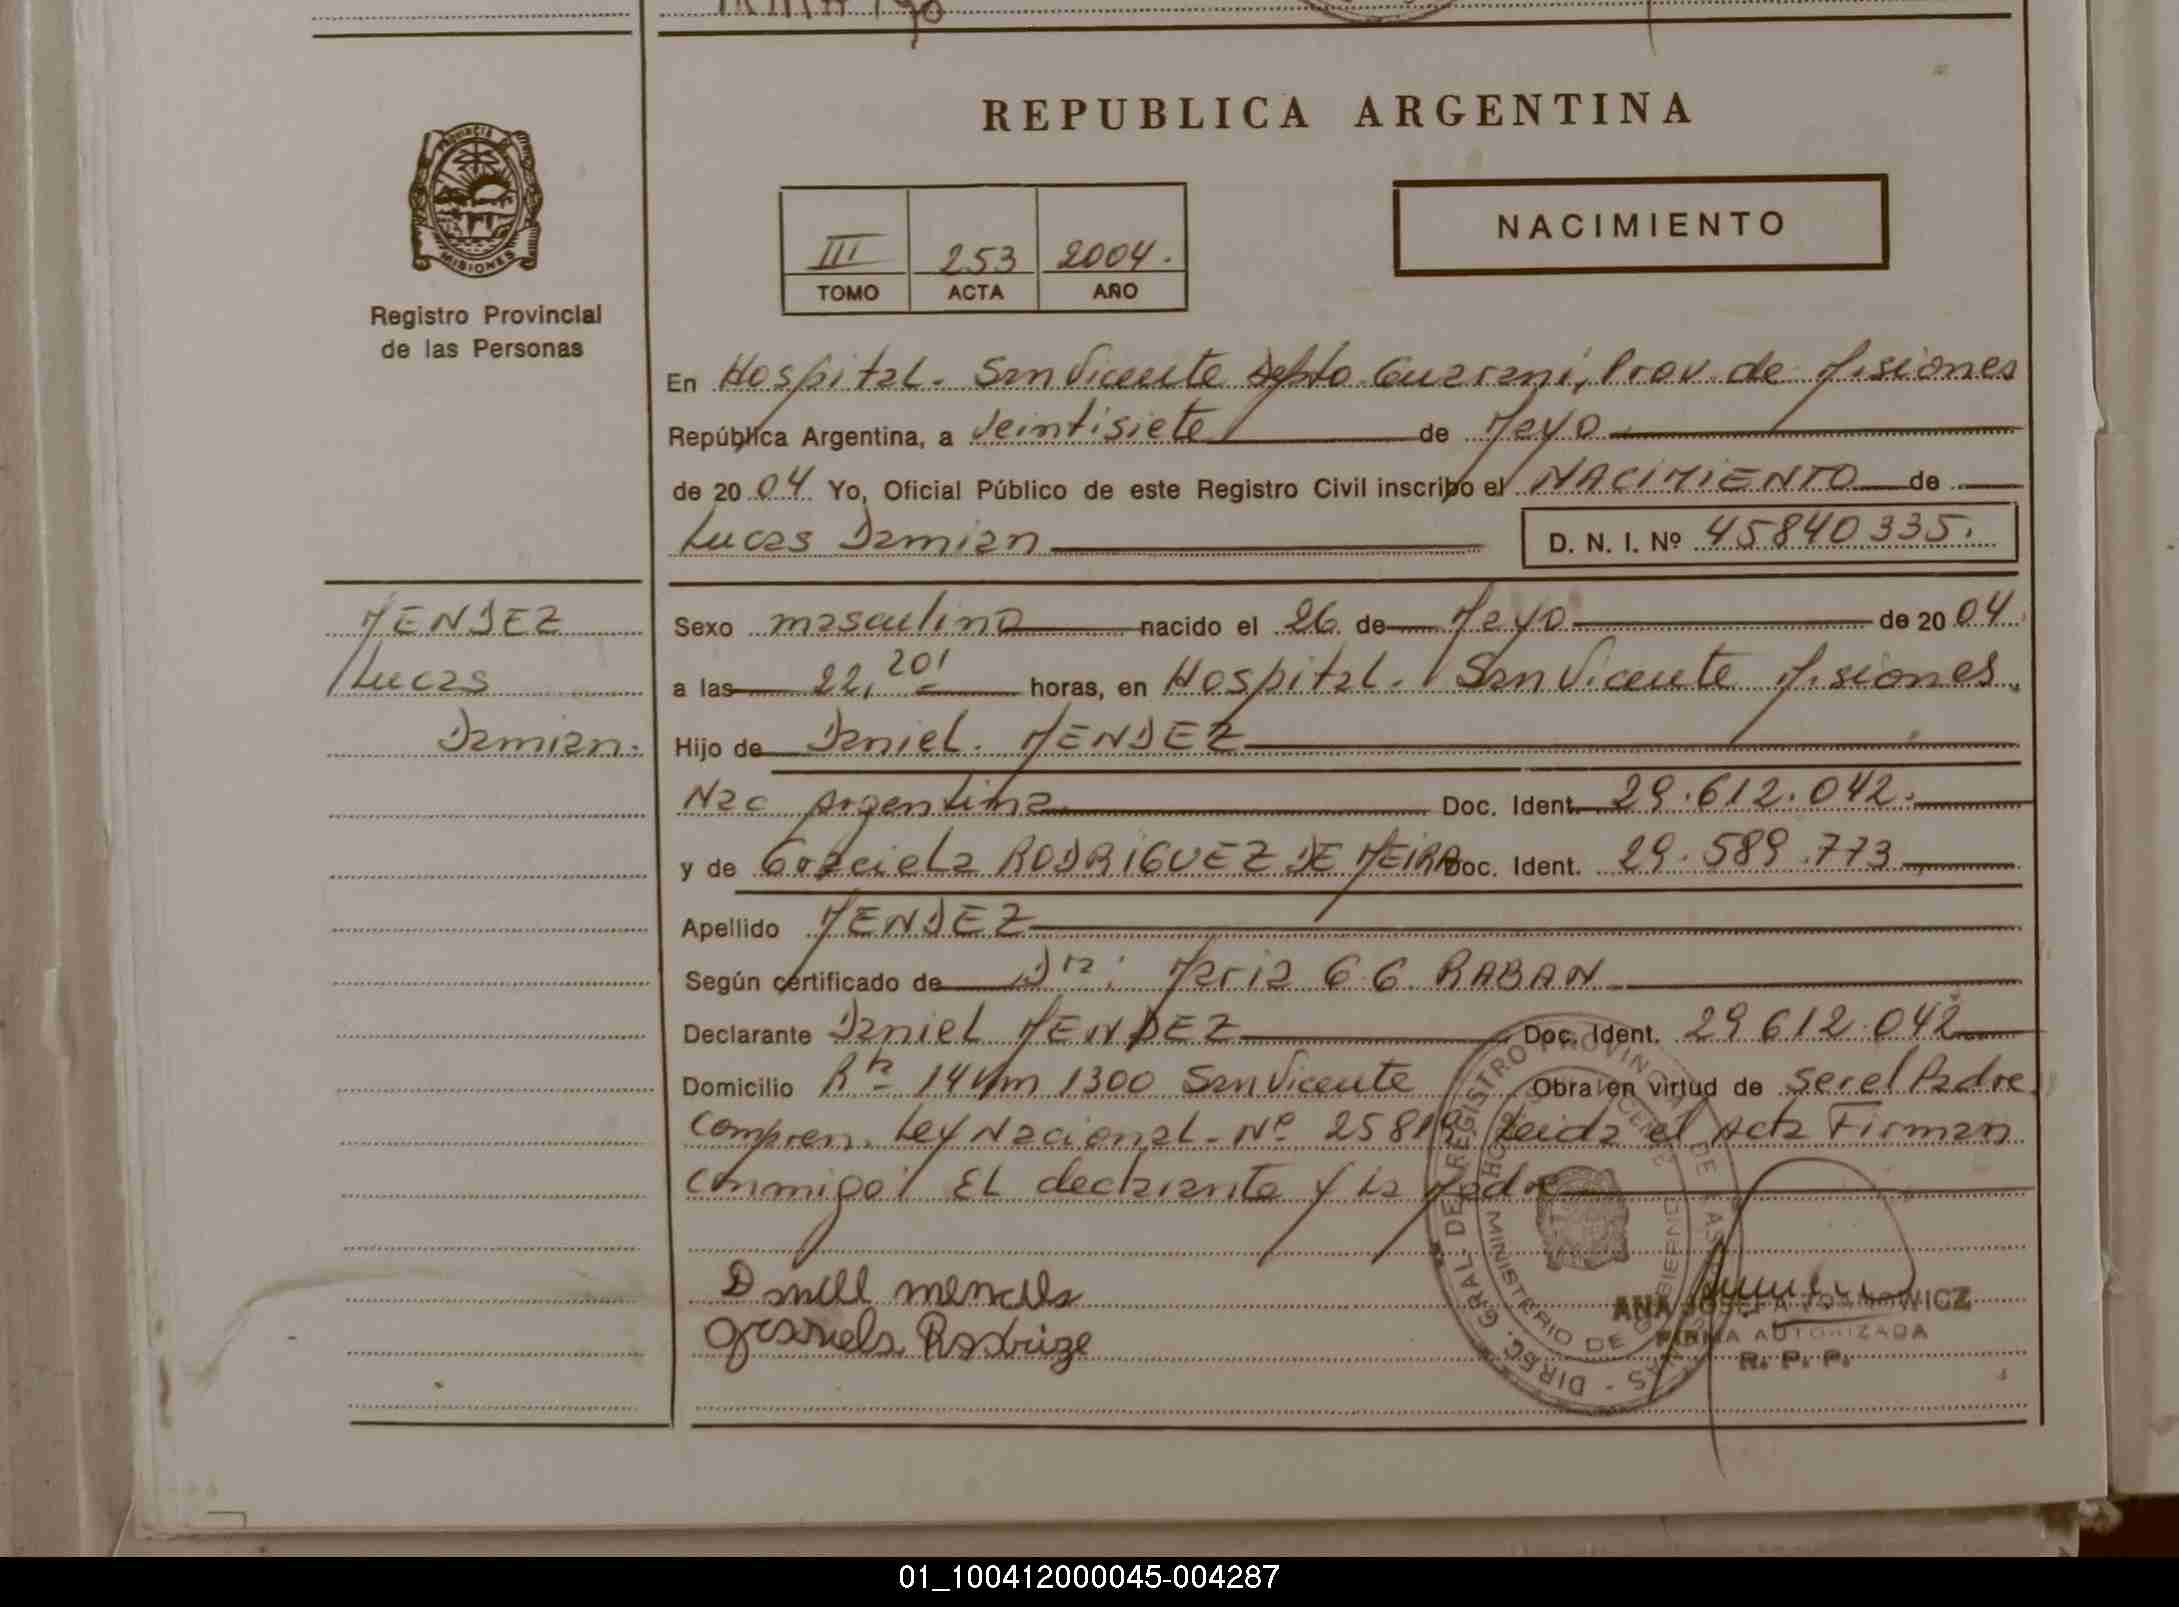 REPUBLICA ARGENTINA
PROVINCIA DE
MISIONES
Registro Provincial
de las Personas
III 253 2004.
TOMO ACTA AÑO
NACIMIENTO
En Hospital. San Vicente Depto. Guarani, Prov. de Misiones
República Argentina, a Veintisiete de Mayo
de 2004. Yo, Oficial Público de este Registro Civil inscribo el NACIMIENTO de
Lucas Damian
D. N. I. Nº 45840335.
MENDEZ
Lucas
Damian.
Sexo masculino nacido el 26 de Mayo de 2004
a las 22,20' horas, en Hospital. San Vicente Misiones.
Hijo de Daniel. MENDEZ
Nac Argentina Doc. Ident. 29.612.042.
y de Graciela RODRIGUEZ DE MEIRA Doc. Ident. 29.589.773
Apellido MENDEZ
Según certificado de Dra: Maria G G RABAN
Declarante Daniel MENDEZ Doc. Ident. 29612.042
Domicilio Rta 14 Km 1300 San Vicente Obra en virtud de ser el Padre
Compren. Ley Nacional. Nº 25819 Leida el Acta Firman
Conmigo El declarante y la Madre
DIREC. GRAL. DE REGISTRO PROVINCIAL DE LAS PERSONAS
MINISTERIO DE GOBIERNO
ANA JOSEFA
FIRMA AUTORIZADA
R. P. P.
01_100412000045-004287